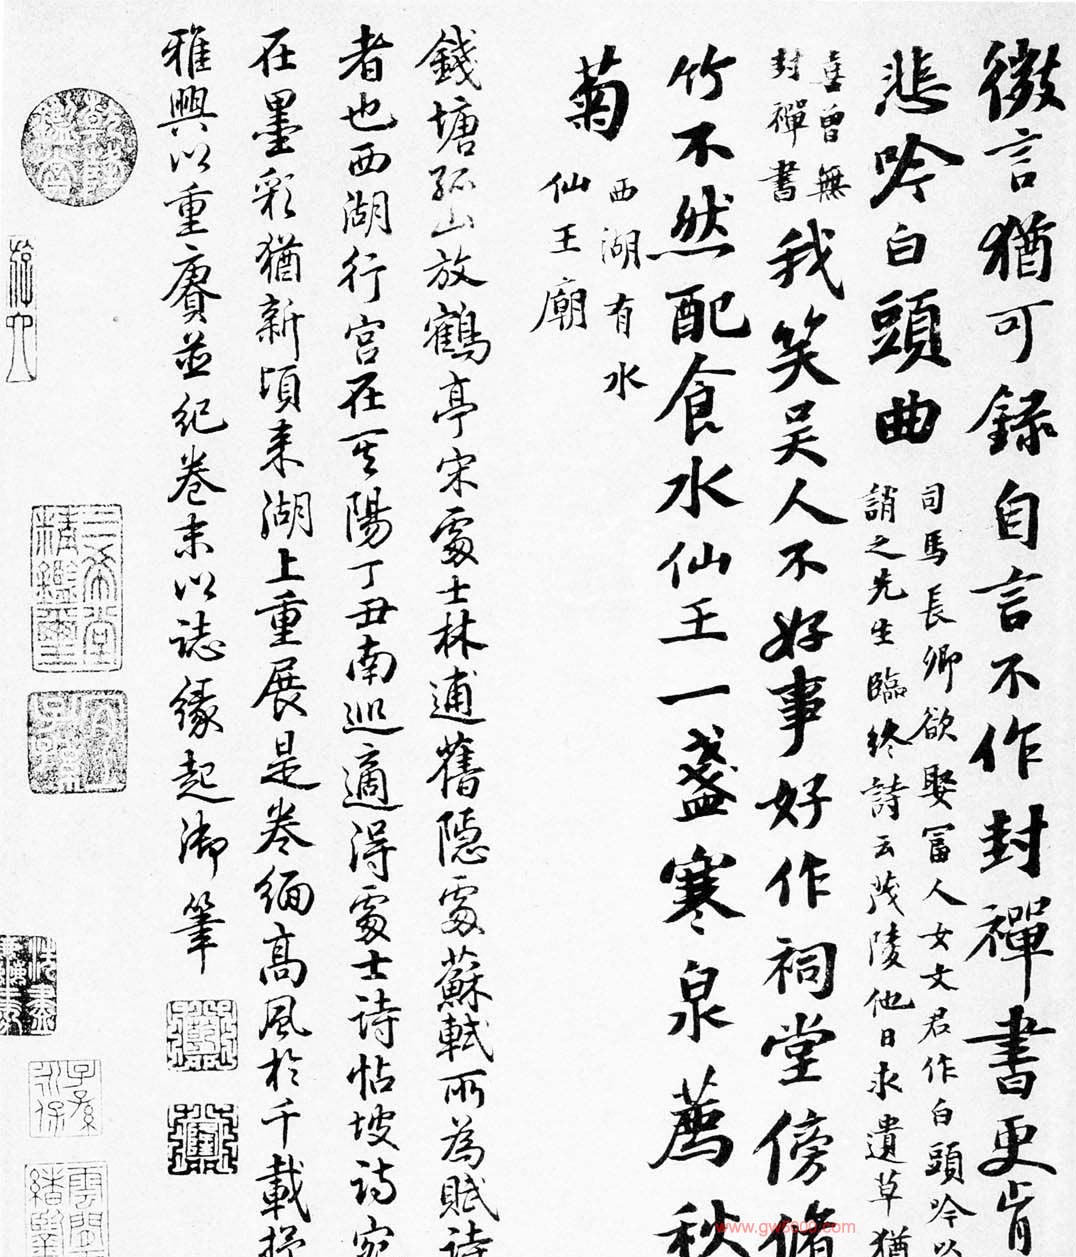 微言猶可録自言不作封禪書更肯
悲吟白頭曲
司馬長卿欲娶富人女文君作白頭吟以
誚之先生臨終詩云茂陵他日求遺草猶
喜曾無
封禪書
我笑吳人不好事好作祠堂傍脩
竹不然配食水仙王一盞寒泉薦秋
菊
西湖有水
仙王廟
錢塘孤山放鶴亭宋處士林逋舊隱處蘇軾所為賦詩
者也西湖行宮在其陽丁丑南巡適得處士詩帖坡詩宛
在墨彩猶新頃来湖上重展是卷緬高風於千載抒
雅興以重賡並紀卷末以誌緣起御筆
乾隆鑑賞
三希堂精鑑璽
宜子孫
子孫永保